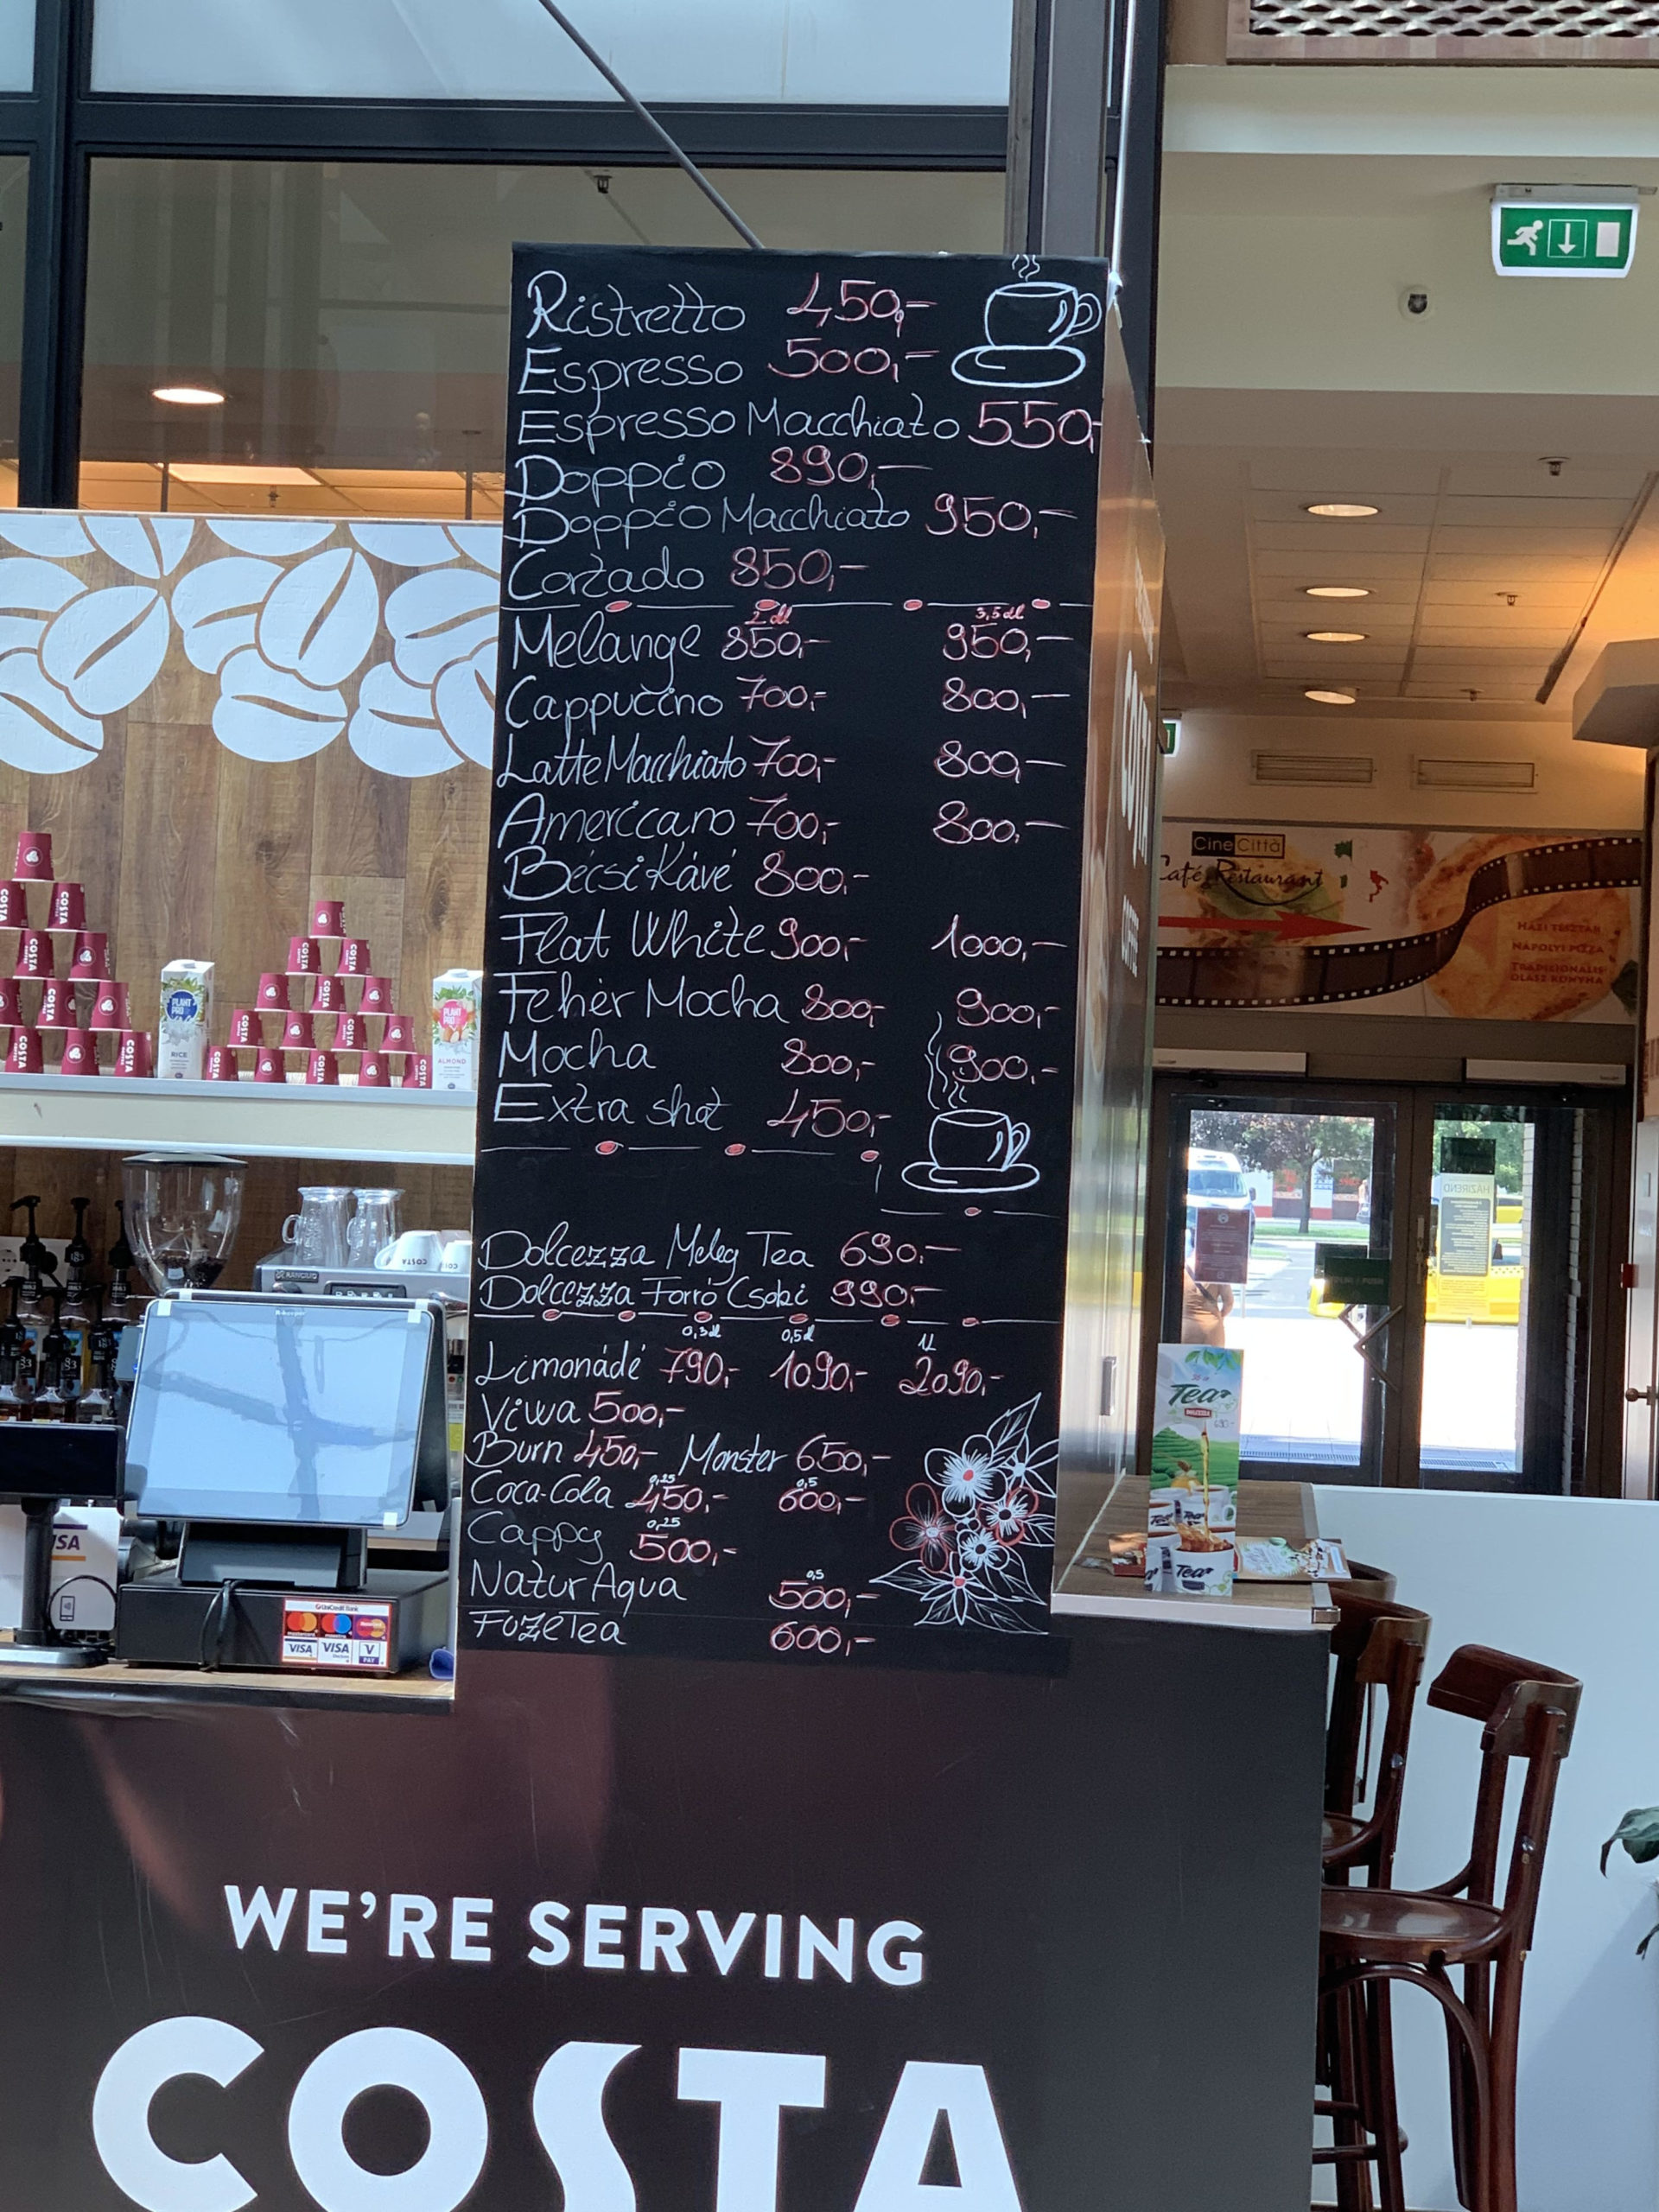 Ristretto 450,-
Espresso 500,-
Espresso Macchiato 550,-
Doppio 890,-
Doppio Macchiato 950,-
Cortado 850,-
2 dl 3,5 dl
Melange 850,- 950,-
Cappuccino 700,- 800,-
Latte Macchiato 700,- 800,-
Americano 700,- 800,-
Bécsi Kávé 800,-
Flat White 900,- 1000,-
Fehér Mocha 800,- 900,-
Mocha 800,- 900,-
Extra shot 450,-
Dolcezza Meleg Tea 690,-
Dolcezza Forró Csoki 990,-
0,3 dl 0,5 dl 1L
Limonádé 790,- 1090,- 2090,-
Viwa 500,-
Burn 450,- Monster 650,-
0,25 0,5
Coca-Cola 450,- 600,-
0,25
Cappy 500,-
0,5
NaturAqua 500,-
FuzeTea 600,-
WE'RE SERVING
COSTA
COSTA
COFFEE
CineCittà
Café Restaurant
HÁZI TÉSZTÁK
NÁPOLYI PIZZA
TRADICIONÁLIS
OLASZ KONYHA
HÁZIREND
Tea
690,-
Tea
Tea
PLANT PRO
RICE
PLANT PRO
ALMOND
COSTA
RANCILIO
UniCredit Bank
VISA
VISA
V PAY
VISA